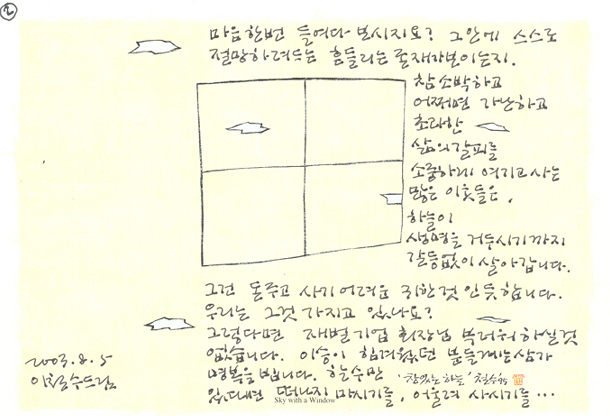 ②
마음 한번 들여다 보시지요? 그 안에 스스로
절망하려드는 흔들리는 존재가 보이는지.
참 소박하고
어쩌면 가난하고
초라한
삶의 갈피를
소중하게 여기고 사는
많은 이웃들은,
하늘이
생명을 거두시기까지
갈등없이 살아갑니다.
그건 돈주고 사기 어려운 귀한 것인 듯합니다.
우리는 그것 가지고 있나요?
그렇다면 재벌기업 회장님 부러워 하실 것
없습니다. 이승이 힘겨웠던 분들께는 삼가
명복을 빕니다. 할 수만
있다면 떠나지 마시기를, 어울려 사시기를…
'창 있는 하늘' 철수
2003.8.5
이철수 드림
Sky with a Window